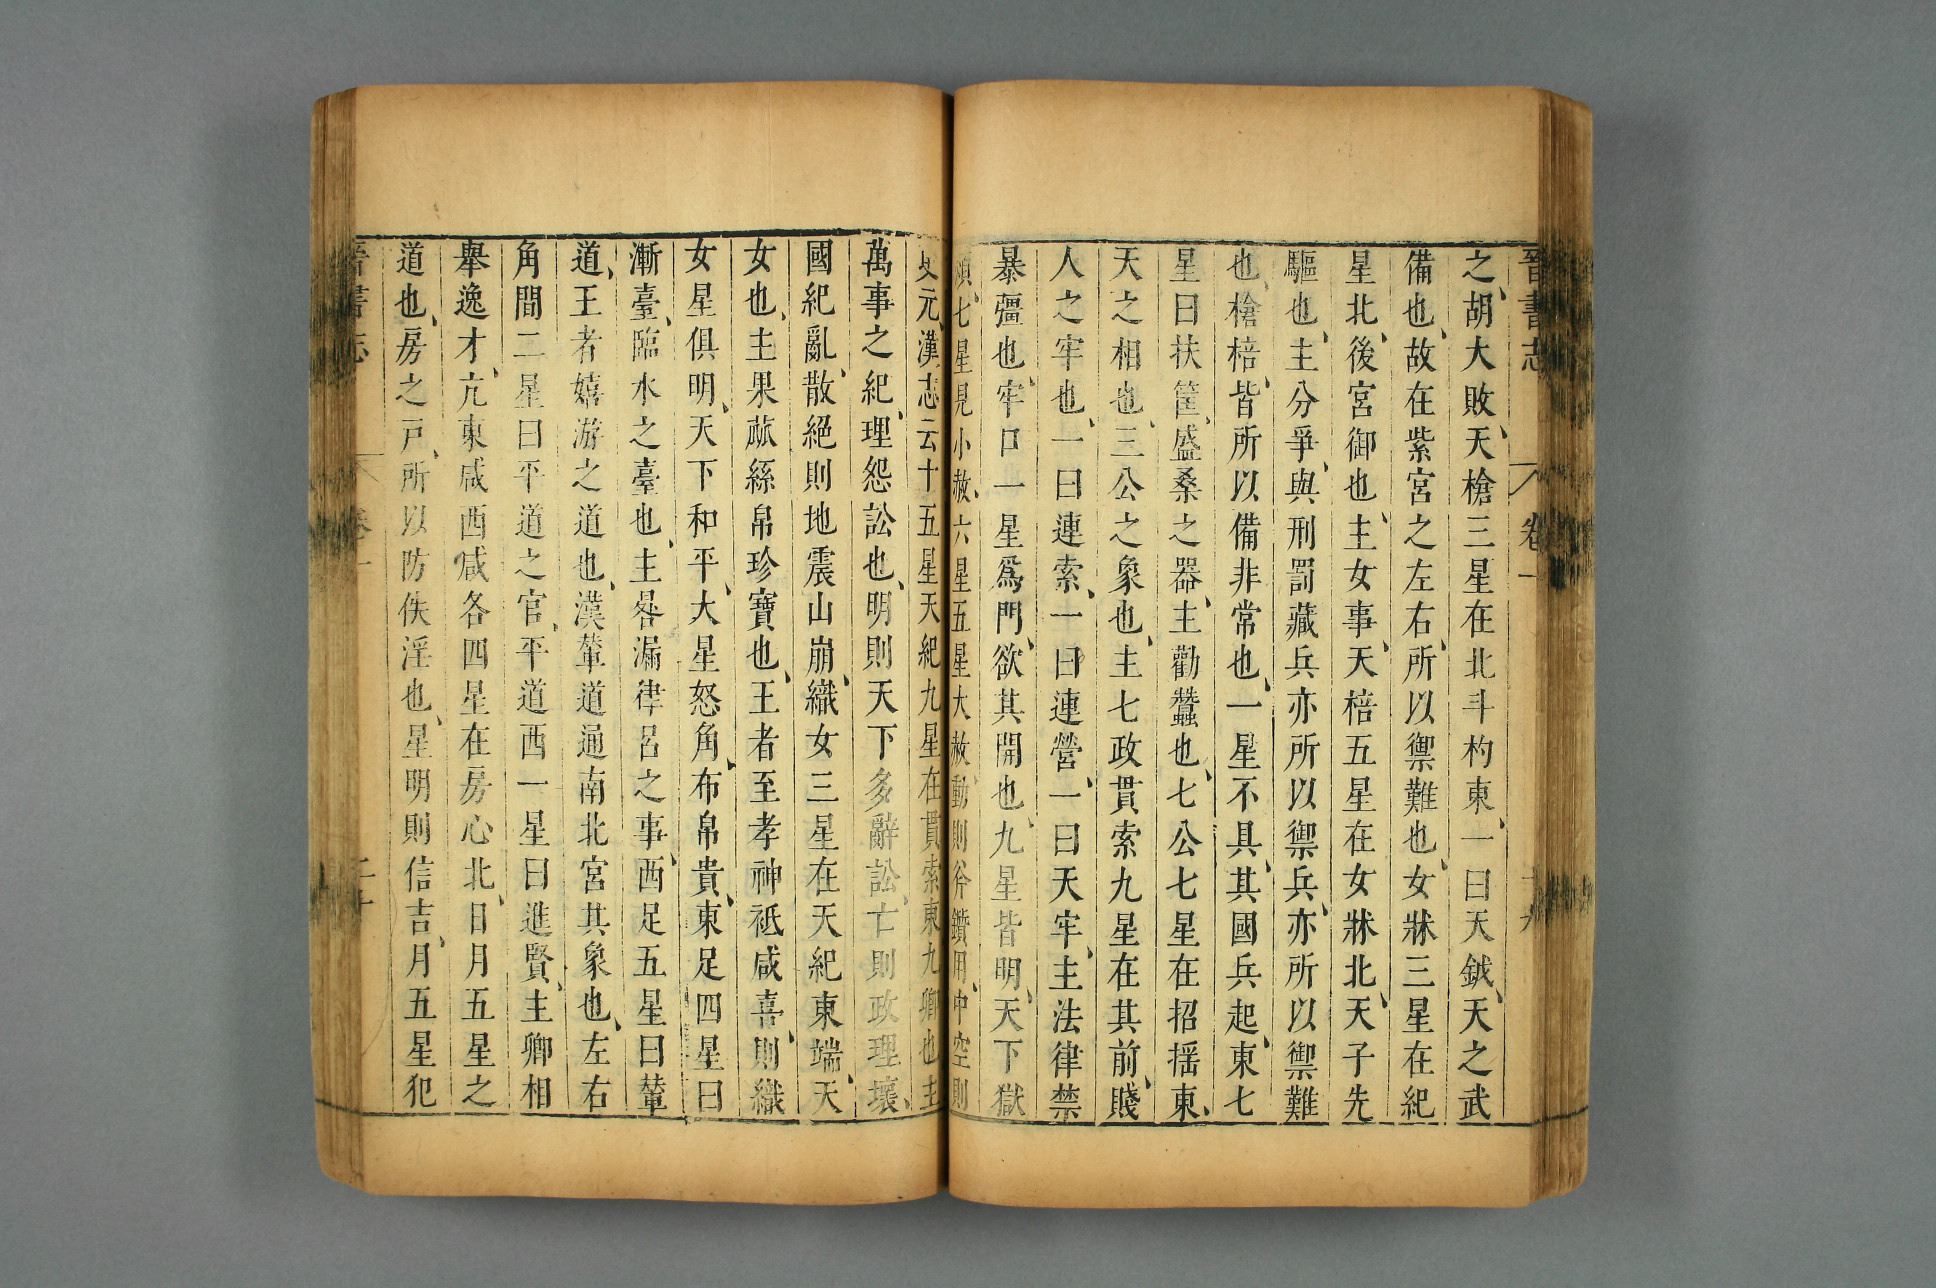 晉書志 卷十一 十九
之胡大敗天槍三星在北斗杓東一曰天鉞天之武
備也故在紫宮之左右所以禦難也女牀三星在紀
星北後宮御也主女事天棓五星在女牀北天子先
驅也主分爭與刑罰藏兵亦所以禦兵亦所以禦難
也槍棓皆所以備非常也一星不具其國兵起東七
星曰扶筐盛桑之器主勸蠶也七公七星在招搖東
天之相也三公之象也主七政貫索九星在其前賤
人之牢也一曰連索一曰連營一曰天牢主法律禁
暴彊也牢口一星爲門欲其開也九星皆明天下獄
煩七星見小赦六星五星大赦動則斧鑕用中空則
更元漢志云十五星天紀九星在貫索東九卿也主
萬事之紀理怨訟也明則天下多辭訟亡則政理壞
國紀亂散絕則地震山崩織女三星在天紀東端天
女也主果蓏絲帛珍寶也王者至孝神祇咸喜則織
女星俱明天下和平大星怒角布帛貴東足四星曰
漸臺臨水之臺也主晷漏律呂之事西足五星曰輦
道王者嬉游之道也漢輦道通南北宮其象也左右
角間二星曰平道之官平道西一星曰進賢主卿相
舉逸才亢東咸西咸各四星在房心北日月五星之
道也房之戸所以防佚淫也星明則信吉月五星犯
晉書志 卷十一 二十